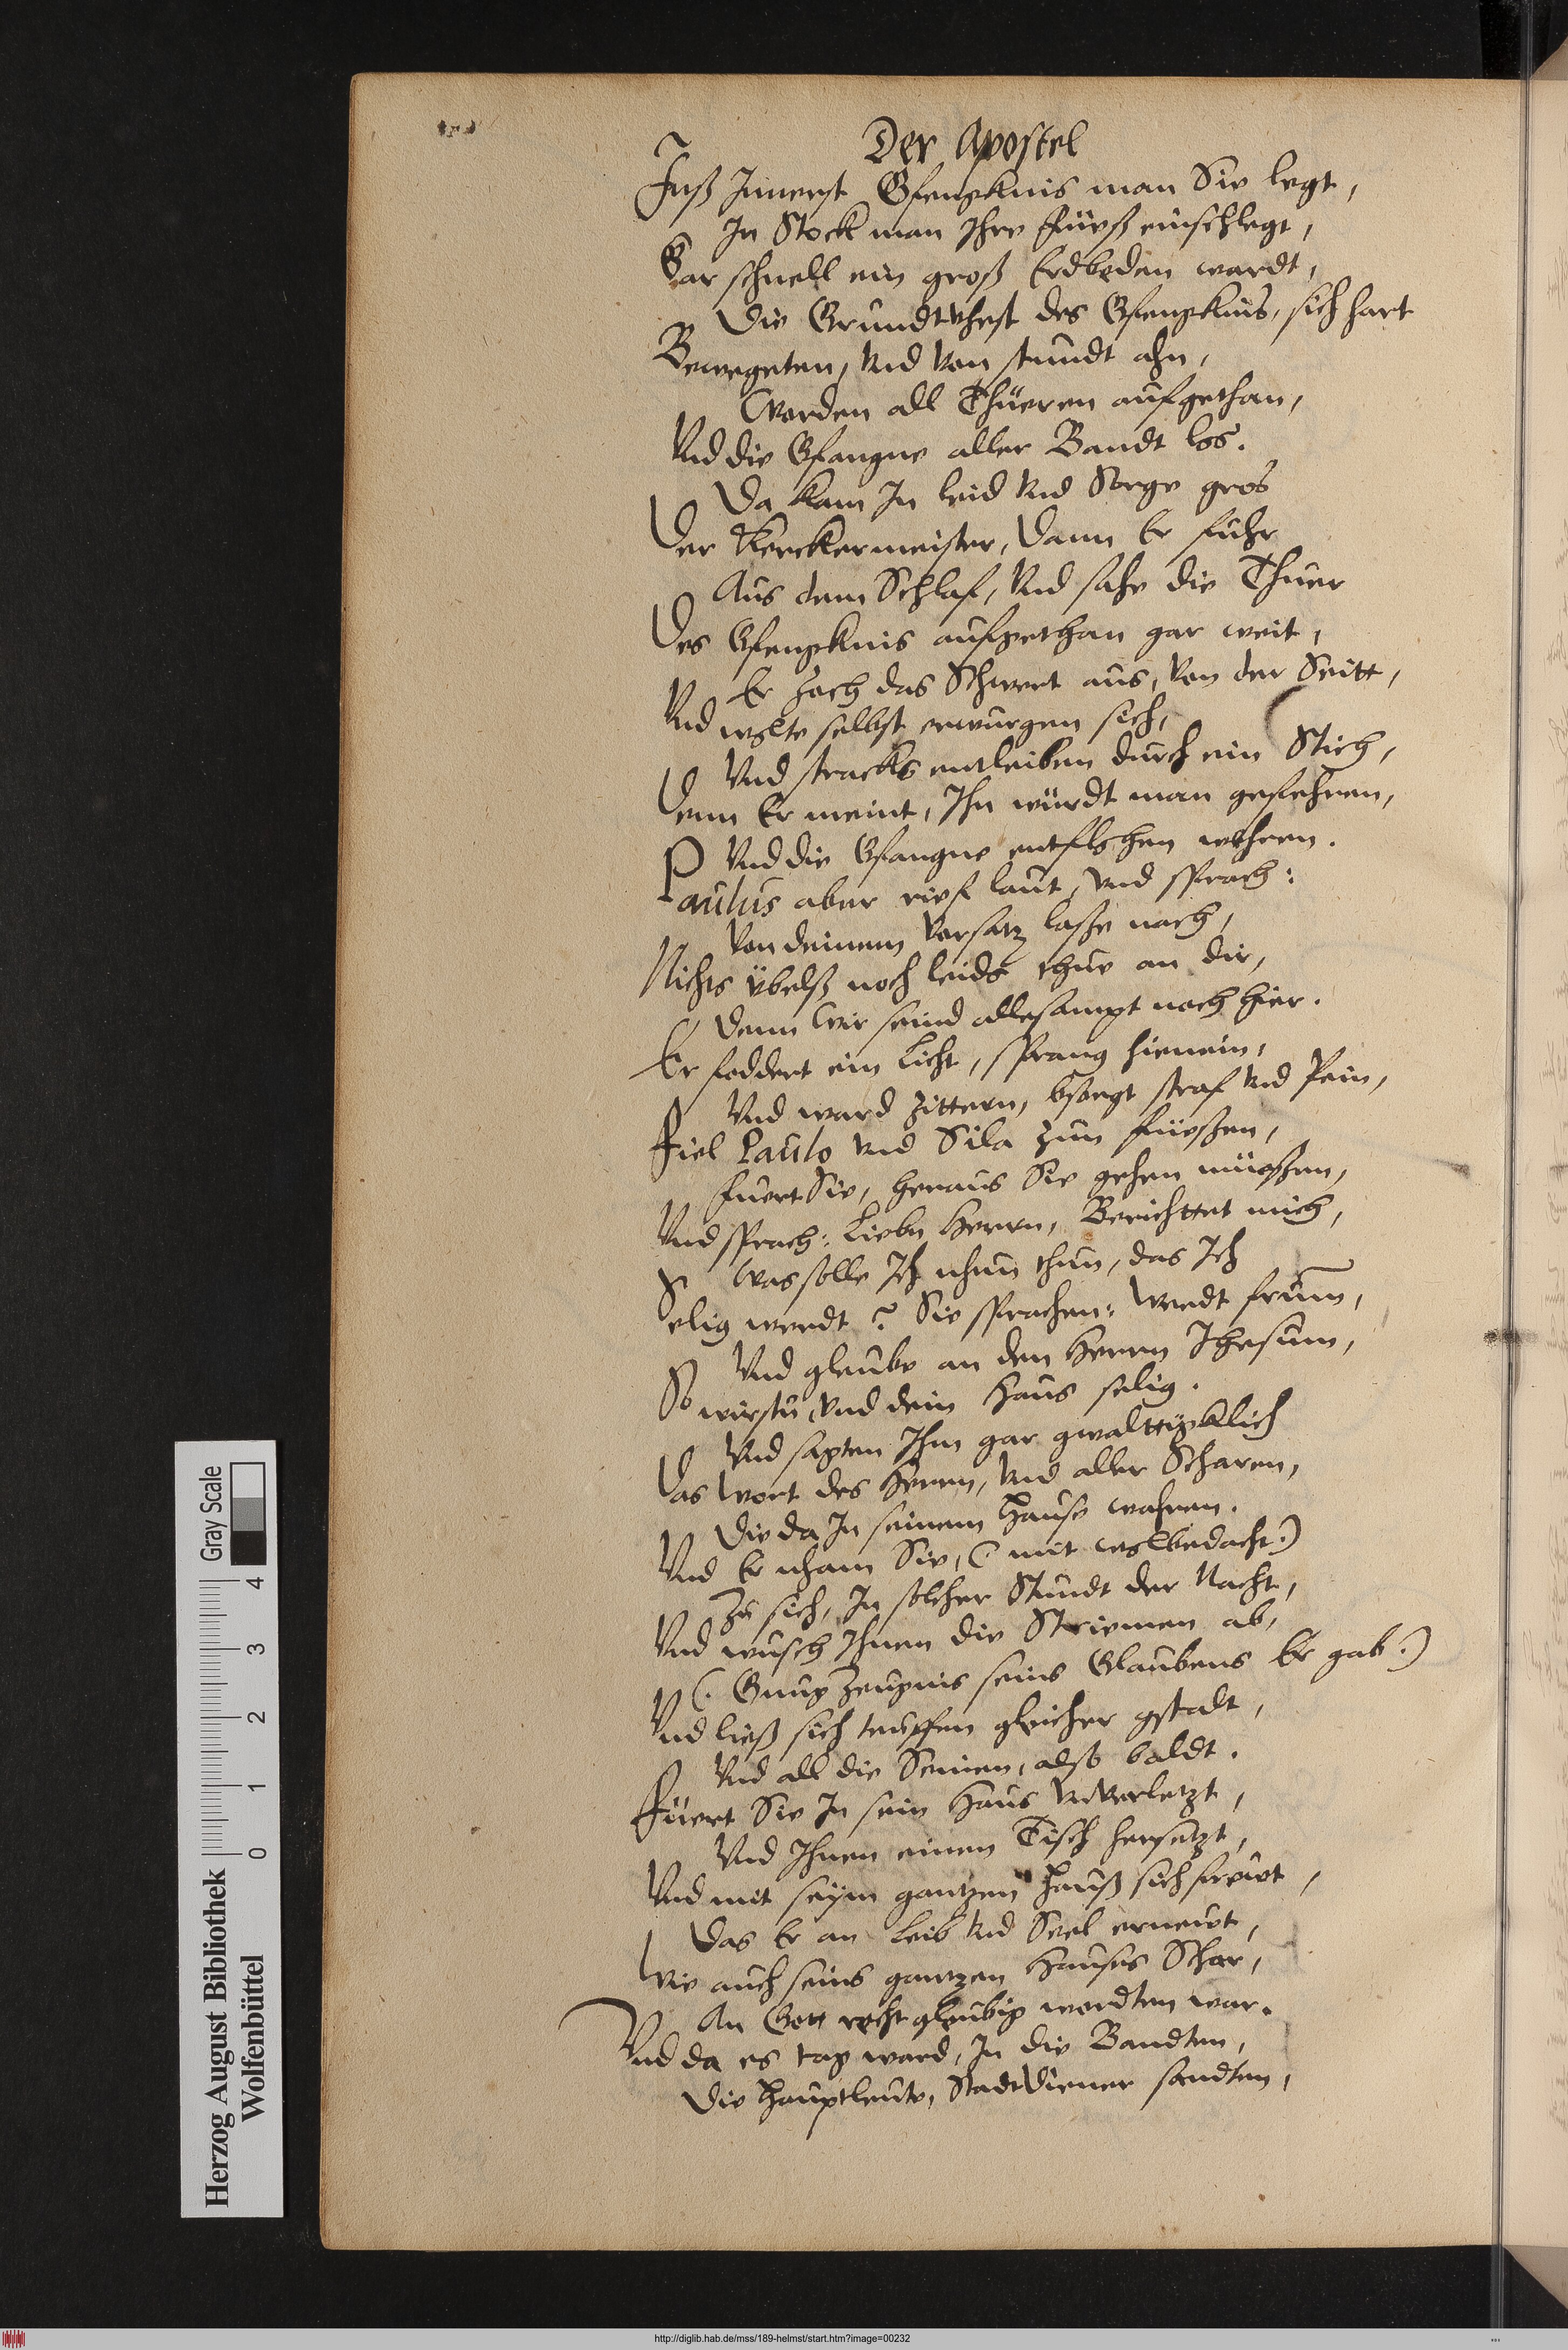 Der Apostel
Inß Innerst Gfengknis man Sie legt,
In Stock man Ihre Füeß einschlegt,
Gar schnell ein groß Erdbeden wardt,
Die Grundtvhest des Gfengknis, sich hart
Bewegeten, Vnd von stundt ahn,
Worden all Thüeren aufgethan,
Vnd die Gfangne aller Bandt los.
Da kam In leid Vnd Sorge gros
Der Kerckermeister, Dann Er fuhr
Aus dem Schlaf, Vnd sahe die Thuer
Des Gfengknis aufgethan gar weit,
Er zoch das Schwert aus, von der Seitt,
Vnd wolte selbst erwurgen sich,
Vnd stracks entleiben durch ein Stich,
Denn Er meint, Ihn würdt man gefehren,
Vnd die Gfangne entflohen wehren.
Paulus aber rief laut, Vnd sprach:
Von deinem Vorsatz laße nach,
Nichts übelß noch leids thue an dir,
Denn Wir seind allesampt noch hier.
Er foddert ein Licht, sprang hienein,
Vnd ward zittern, bsorgt straf Vnd Pein,
Fiel Paulo Vnd Sila zun füeßen,
Fuert Sie, heraus Sie gehen müeßen,
Vnd sprach: Liebn Herrn, Berichttet mich,
Was solle Ich nhun thun, das Ich
Selig werdt? Sie sprachen: Werdt frum,
Vnd gleube an den Herrn Ihesum,
So wirstu Vnd dein Haus selig.
Vnd sagten Ihm gar gwalttigklich
Das Wort des Herrn, Vnd aller Scharen,
Die da In seinem Hause wahren.
Vnd Er nham Sie, (: mit wolbedacht:)
Zu sich, In solcher Stundt der Nacht,
Vnd wusch Ihnen die Striemen ab,
(: Gnug Zeugnis seins Glaubens Er gab:)
Vnd ließ sich teuffen gleicher gstalt,
Vnd all die Seinen, also baldt.
Füert Sie In sein Haus Vnverletzt,
Vnd Ihnen einen Tisch hersetzt,
Vnd mit seym gantzen Hauß sich frewt,
Das Er an Leib Vnd Seel ernewt,
Wie auch seins gantzen Hauses Schar,
An Gott recht gleubig wordten war.
Vnd da es tag ward, In die Bandten,
Die Hauptleute, Stadtdiener sandten,
Herzog August Bibliothek
Wolfenbüttel
0 1 2 3 4
Gray Scale
http://diglib.hab.de/mss/189-helmst/start.htm?image=00232